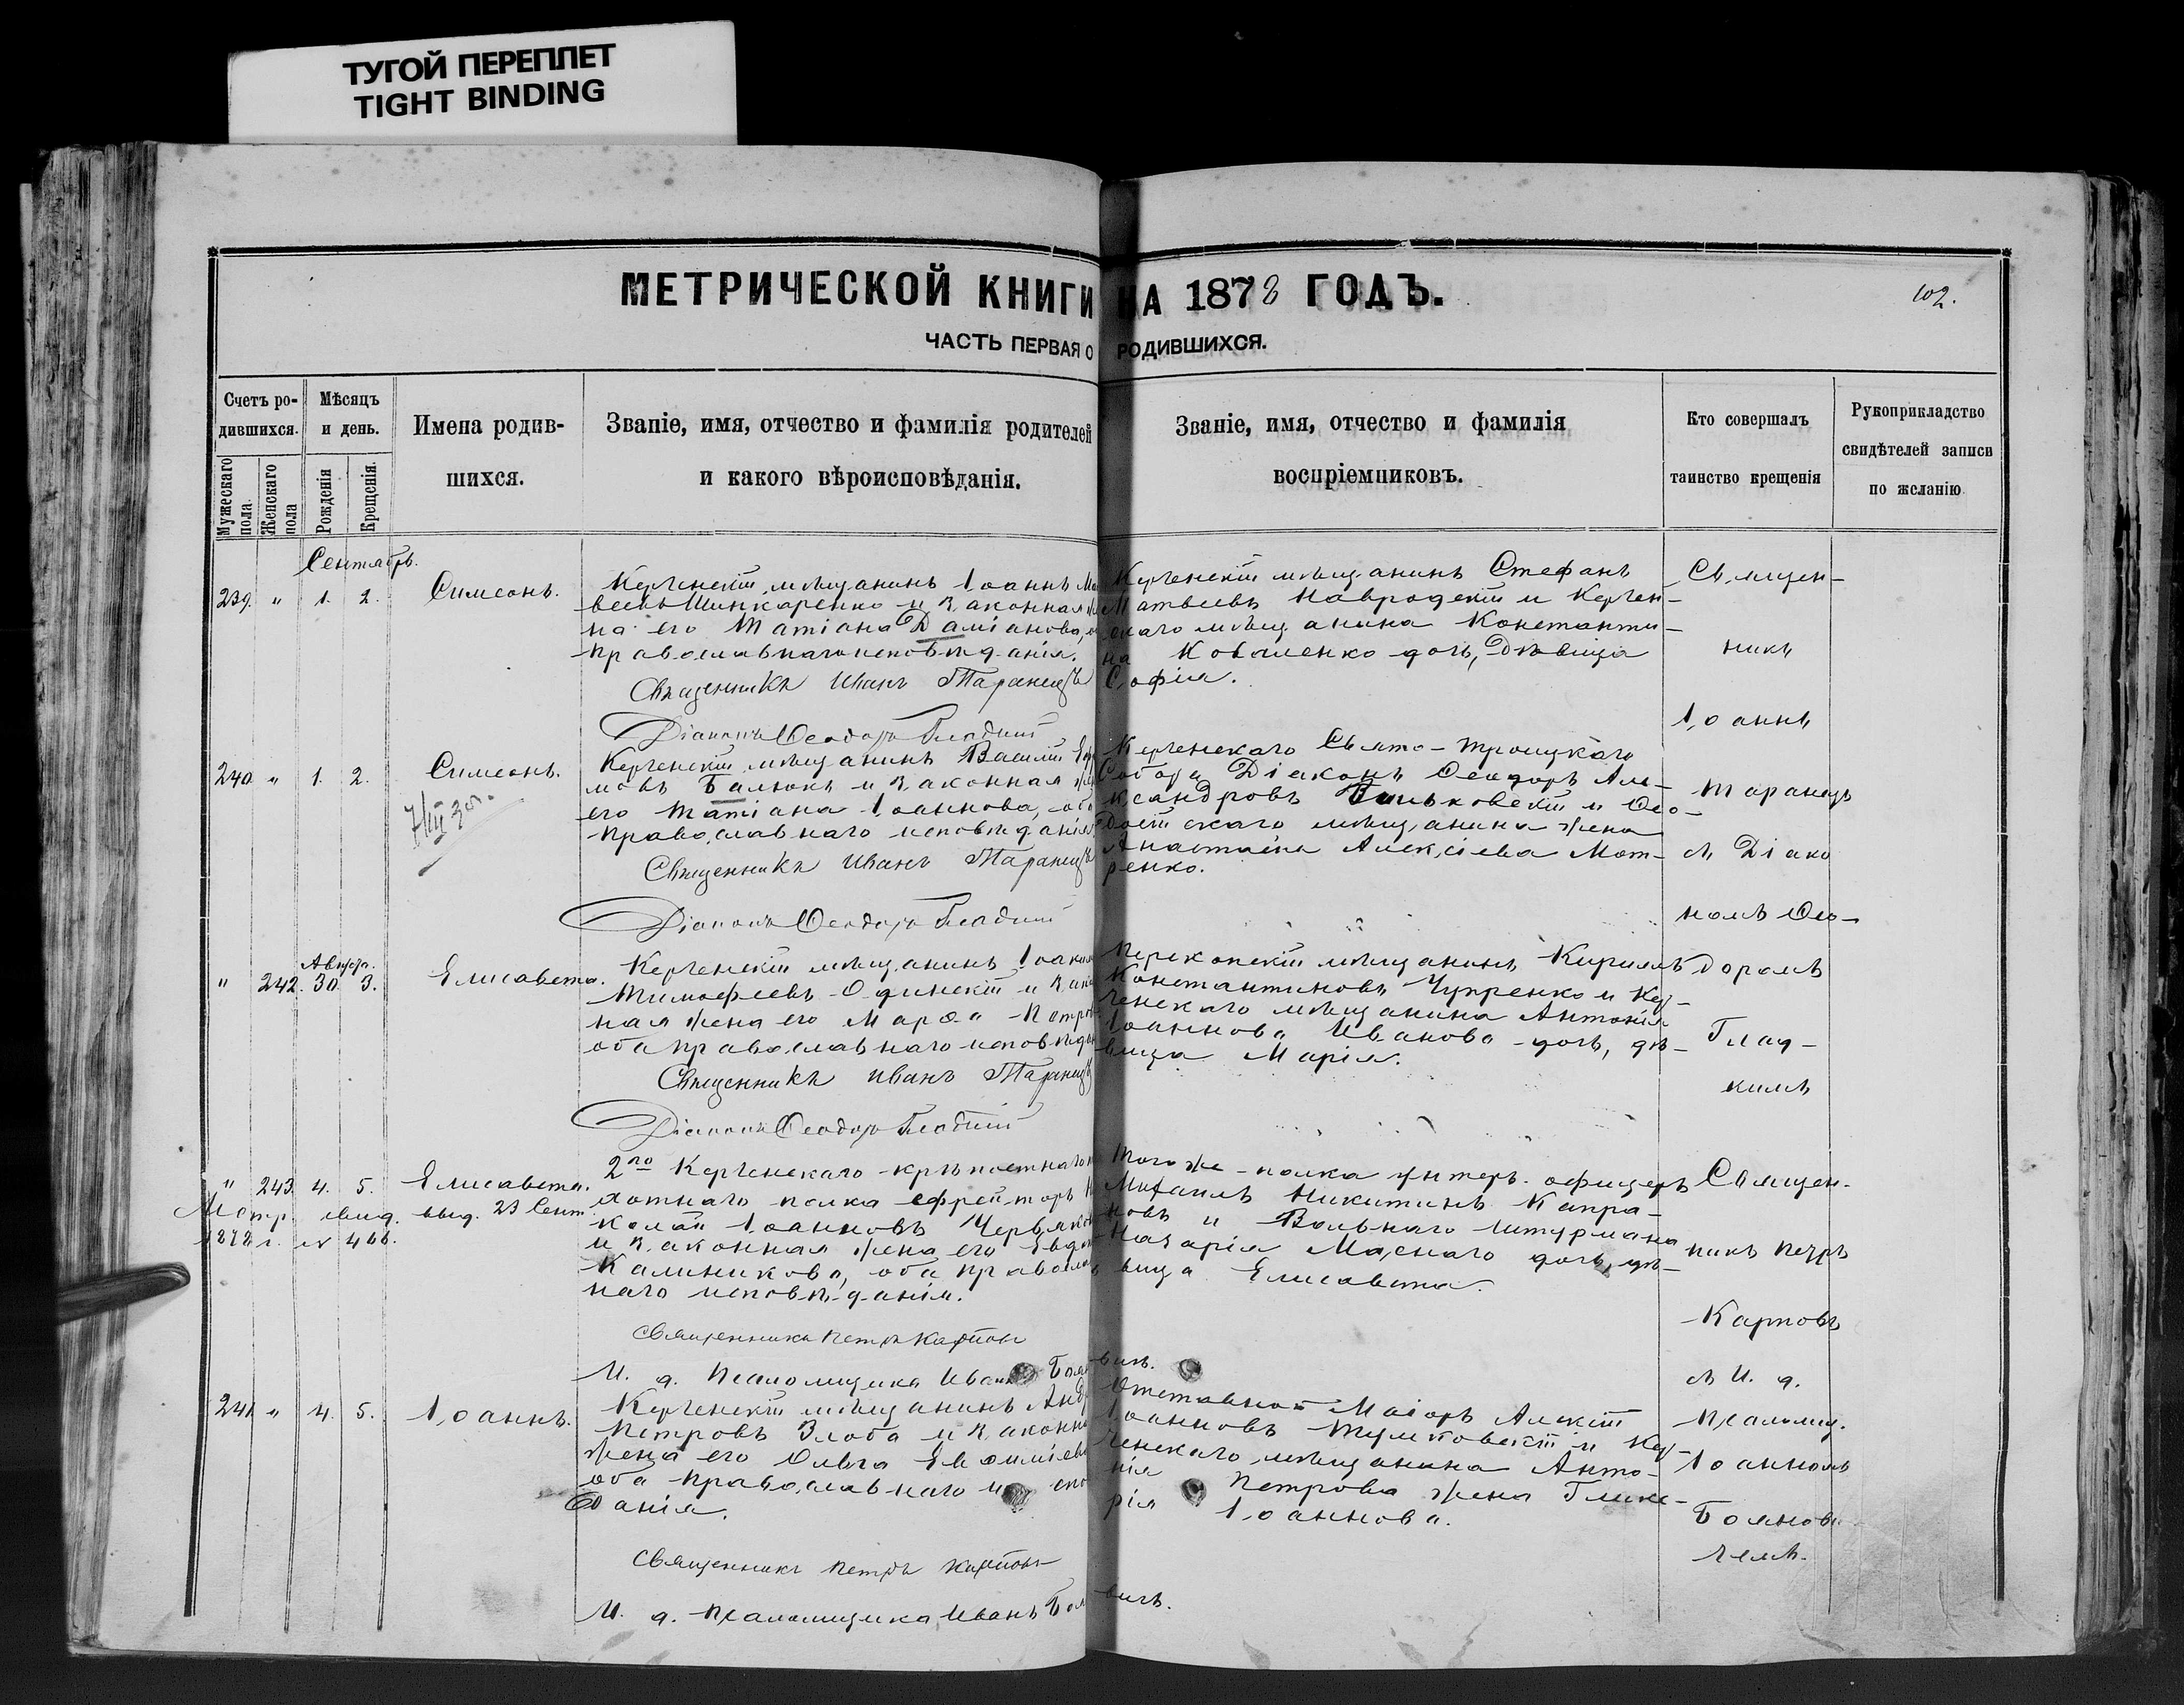 ТУГОЙ ПЕРЕПЛЕТ
TIGHT BINDING
МЕТРИЧЕСКОЙ КНИГИ НА 1878 ГОДЪ.
102.
ЧАСТЬ ПЕРВАЯ О РОДИВШИХСЯ.
Счетъ ро-
дившихся.
Мужескаго пола.
Женскаго пола
Мѣсяцъ
и день.
Рожденія
Крещенія.
Имена родив-
шихся.
Званіе, имя, отчество и фамилія родителей
и какого вѣроисповѣданія.
Званіе, имя, отчество и фамилія
воспріемниковъ.
Кто совершалъ
таинство крещенія
Рукоприкладство
свидѣтелей записи
по желанію
Сентябрь.
239. " 1. 2. Симеонъ.
Керченскій мѣщанинъ Іоаннъ Ма
веевъ Шинкаренко и законная
на его Татіана Даміанова,
православнаго исповѣданія.
Священникъ Иванъ Таранецъ
Діаконъ Ѳеодоръ Гладкій
Керченскій мѣщанинъ Стефанъ
Матвѣевъ Навродскій и Керчен-
скаго мѣщанина Константи-
на Коваленко дочь, дѣвица
Софія.
240 " 1. 2. Симеонъ.
Керченскій мѣщанинъ Василій
мовъ Балюкъ и законная
его Татіана Іоаннова, обо
православнаго исповѣданія
Священникъ Иванъ Таранецъ
Діаконъ Ѳеодоръ Гладкій
Керченскаго Свято-Троицкаго
Собора Діаконъ Ѳеодоръ Але-
ксандровъ и Ѳео-
досійскаго мѣщанина жена
Анастасія Алексіева Мот-
ренко.
Август.
" 242. 30. 3. Елисавета.
Керченскій мѣщанинъ Іоаким
Тимофеевъ Одинскій и зако
ная жена его Марѳа Петров
оба православнаго исповѣдан
Священникъ Иванъ Таранецъ
Діаконъ Ѳеодоръ Гладкій
Перекопскій мѣщанинъ Кириллъ
Константиновъ Чупренко и Кер-
ченскаго мѣщанина Антонія
Іоаннова Иванова дочь, дѣ-
вица Марія.
Священ-
никъ
Іоаннъ
Таранецъ
съ Діако
номъ Ѳео-
доромъ
Глад-
кимъ
" 243. 4. 5. Елисавета.
Метр. свид. выд. 23 Сент.
1878 г. № 466.
2го Керченскаго крѣпостнаго
хотнаго полка ефрейторъ Н
колай Іоанновъ Червяко
и законная жена его Евдок
Калиникова, оба православ
наго исповѣданія.
Священникъ Петръ Карповъ
И. д. Псаломщика Иванъ Бояновичъ.
Того же полка унтеръ-офицеръ
Михаилъ Никитинъ Капра-
новъ и Вольнаго штурмана
Назарія Маснаго дочь, дѣ-
вица Елисавета.
Священ-
никъ Петръ
Карповъ
съ И. д.
Псаломщ.
Іоанномъ
Боянови
чемъ.
241 " 4. 5. Іоаннъ.
Керченскій мѣщанинъ Анд
Петровъ Злоба и законна
жена его Ольга Евѳиміева
оба православнаго испо
вѣданія.
Священникъ Петръ Карповъ
И. д. Псаломщика Иванъ Бояновичъ.
Отставной Маіоръ Алексій
Іоанновъ Тумковскій и Кер-
ченскаго мѣщанина Анто-
нія Петрова жена Глике-
рія Іоаннова.